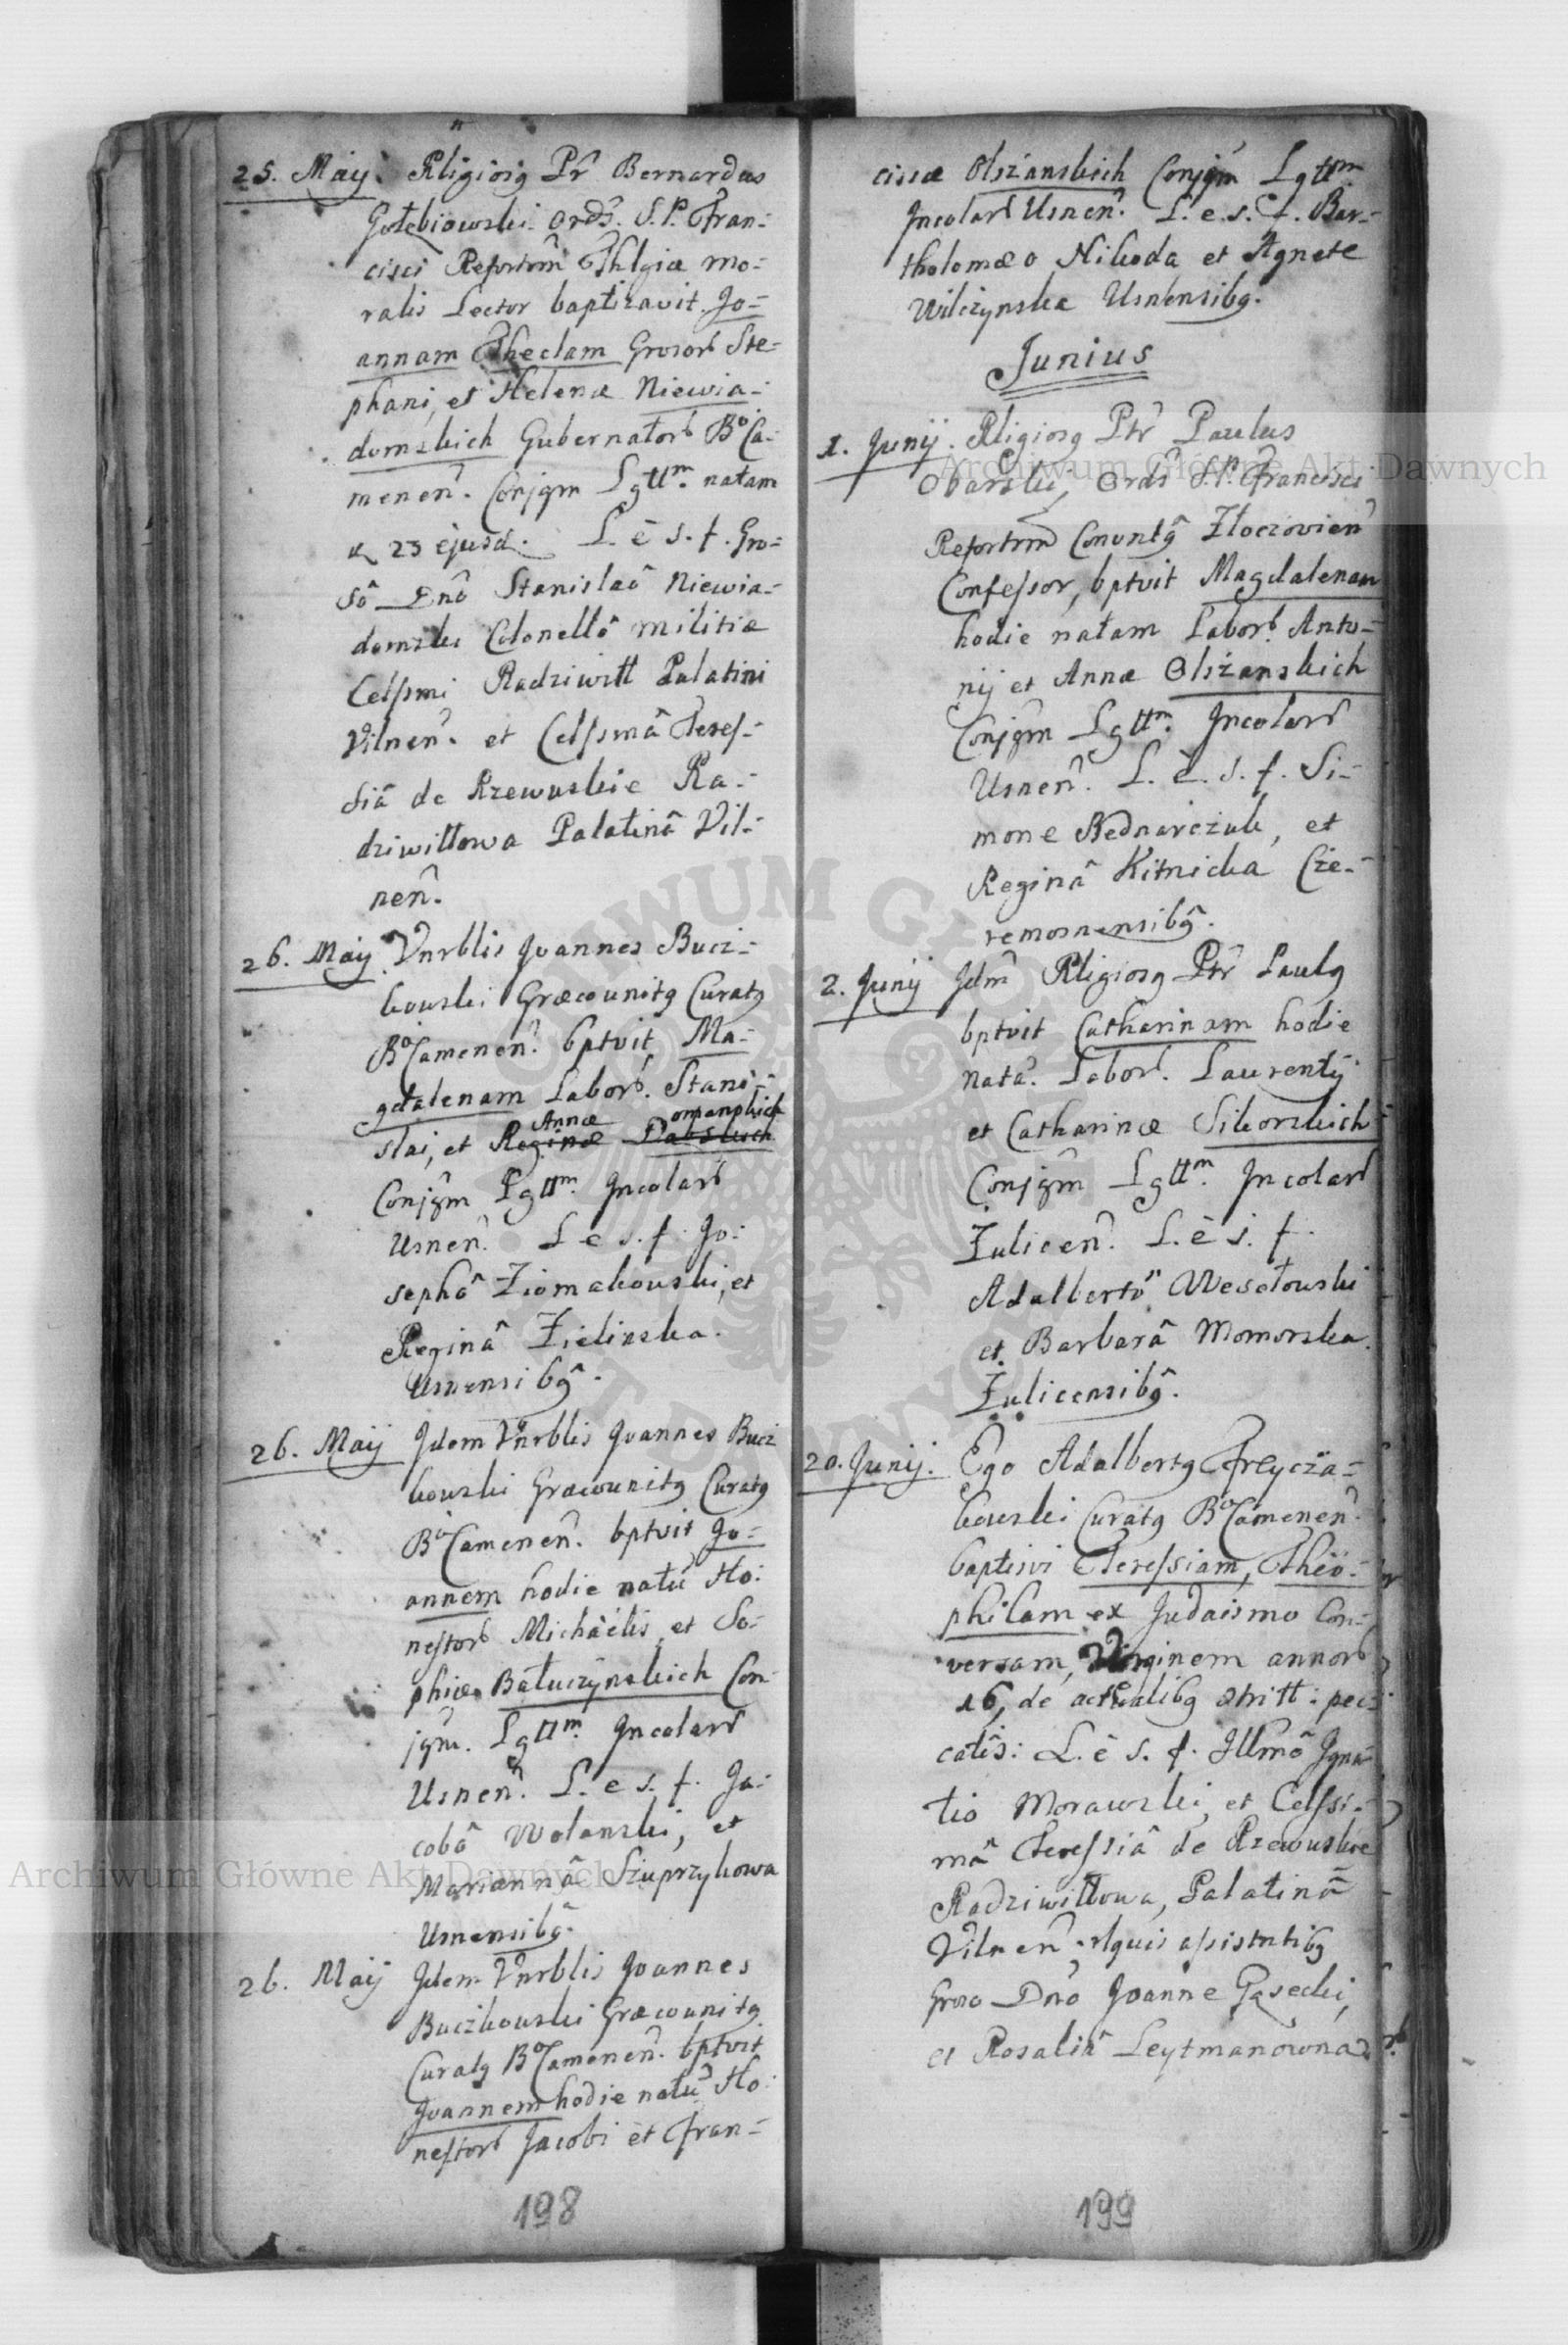 25. Maij. Rligiosq Pr̃ Bernardus
Gołebiowski Ords. S. P. Fran=
cisci Refortrm̃ Thlgiæ mo=
ralis Lector baptizavit Jo=
annam Theclam Grosorũ Ste=
phani, et Helenæ Niewia=
domskich Gubernatorũ Bº Ca=
menen̄. Conjgm Lgttm. natam
23 ejusd. L. e s. f. Gro=
sô Dnô Stanislaô Niewia=
domski Colonellô militiæ
Celsmi Radziwiłł Palatini
Vilnen̄. et Celssmâ Teres=
siâ de Rzewuskie Ra=
dziwiłłowa Palatinâ Vil=
nen̄.
26. Maij Vnrblis Joannes Bucz=
kowski Græcounitq Curatq
Bº Camenen̄. bptvit Ma=
gdalenam Laborũ. Stani=
Annæ omanskich
slai, et Reginæ Pabskich
Conjgm̃ Lgttm. Incolarũ
Usnen̄. L e s. f. Jo=
sephô Ziomakowski, et
Reginâ Zielinska.
Usnensibq̂.
26. Maij Idem Vnrblis Joannes Bucz
kowski Græcounitq Curatq
Bº Camenen̄. bptvit Jo=
annem hodie natũ Ho=
nestorũ Michäelis, et So=
phiæ Bałuczynskich Con
jgm̃. Lgttm. Incolarũ
Usnen̄. L. e s. f. Ja=
cobô Wolanski, et
Mariannâ Szuprzykowa
Usnensibq̂.
26. Maij Idem Vnrblis Joannes
Buczkowski Græcounitq
Curatq Bº Camenen̄. bptvit
Joannem hodie natũ Ho=
nestorũ Jacobi et Fran=
198
cissæ Olszanskich Conjgm̃ Lgttm
Incolarũ Usnen̄. L. e. s. f. Bar=
tholomæo Nikoda et Agnete
Wilczynska Usnensibq.
Junius
1. Junij. Rligiosq Ptr̃ Paulus
Obarski, Ords S. P. Francisci
Refortrm̃ Convntq̂ Złoczovien̄
Confessor, bptvit Magdalenam
hodie natam Laborũ. Anto=
nij et Annæ Olszanskich
Conjgm̃ Lgttm. Incolarũ
Usnen̄. L. e. s. f. Si=
mone Bednarczuk, et
Reginâ Kitnicka Cze=
remosnensibq̂.
2. Junij Idm̃ Rligiosq Ptr̃ Paulq
bptvit Catharinam hodie
natã. Laborũ. Laurentij
et Catharinæ Sikorskich
Conjgm̃ Lgttm. Incolarũ
Żulicen̄. L. e s. f.
Adalbertô Wesołowski
et Barbarâ Momorska.
Żulicensibq̂.
20. Junij. Ego Adalbertq Freycza=
kowski Curatq Bº Camenen̄.
baptisvi Teressiam, Theo=
philam ex Judaismo Con=
versam, Virginem annorũ
16, de actualibq stritt: pec=
catis: L. e s. f. Illmô Igna=
tio Morawski, et Celssi=
mâ Teressiâ de Rzewuskie
Radziwiłłowa, Palatinâ
Vilnen̄. rlquis assistntibq
Groso Dnô Joanne Gąsecki,
et Rosaliâ Leytmanowna
199
Archiwum Główne Akt Dawnych
Archiwum Główne Akt Dawnych